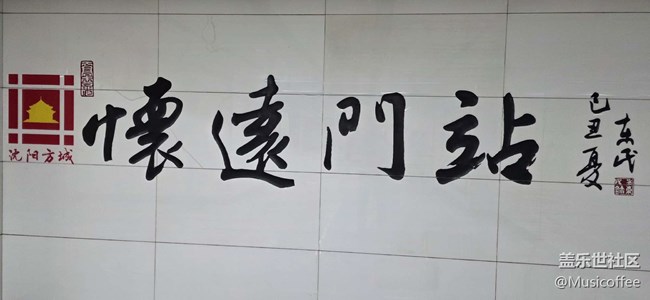 沈阳方城
懷遠門站
己丑夏
东民
盖乐世社区
@Musicoffee